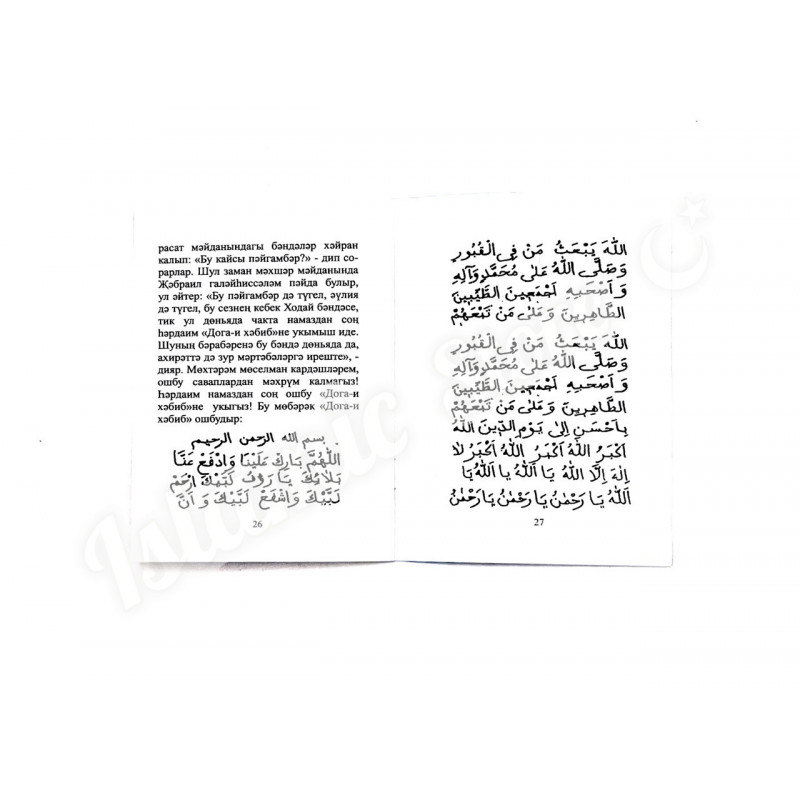 расат мәйданындагы бәндәләр хәйран
калып: «Бу кайсы пәйгамбәр?» - дип со-
рарлар. Шул заман мәхшәр мәйданында
Җәбраил галәйһиссәләм пәйда булыр,
ул әйтер: «Бу пәйгамбәр дә түгел, әүлия
дә түгел, бу сезнең кебек Ходай бәндәсе,
тик ул дөньяда чакта намаздан соң
һәрдаим «Дога-и хәбиб»не укымыш иде.
Шуның бәрабәренә бу бәндә дөньяда да,
ахирәттә дә зур мәртәбәләргә иреште», -
дияр. Мөхтәрәм мөселман кардәшләрем,
ошбу саваплардан мәхрүм калмагыз!
Һәрдаим намаздан соң ошбу «Дога-и
хәбиб»не укыгыз! Бу мөбарәк «Дога-и
хәбиб» ошбудыр:
بسم الله الرحمن الرحيم
اَللّٰهُمَّ بَارِكْ عَلَيْنَا وَادْفَعْ عَنَّا
بَلَائِكَ يَا رَؤُفُ لَبَّيْكَ اِرْحَمْ
لَبَّيْكَ وَاشْفَعْ لَبَّيْكَ وَ اَنَّ
26
اللّٰهَ يَبْعَثُ مَنْ فِى الْقُبُورِ
وَصَلَّى اللّٰهُ عَلٰى مُحَمَّدٍ وَآلِهِ
وَ اَصْحَبِهِ اَجْمَعِينَ الطَّيِّبِينَ
الطَّاهِرِينَ وَعَلٰى مَنْ تَبْعَهُمْ
اللّٰهَ يَبْعَثُ مَنْ فِى الْقُبُورِ
وَصَلَّى اللّٰهُ عَلٰى مُحَمَّدٍ وَآلِهِ
وَ اَصْحَبِهِ اَجْمَعِينَ الطَّيِّبِينَ
الطَّاهِرِينَ وَعَلٰى مَنْ تَبْعَهُمْ
بِاَحْسَنِ اِلٰى يَوْمِ الدِّينَ اَللّٰهُ
اَكْبَرُ اَللّٰهُ اَكْبَرُ اَللّٰهُ اَكْبَرُ لَا
اِلٰهَ اِلَّا اللّٰهُ يَا اَللّٰهُ يَا اَللّٰهُ يَا
اَللّٰهُ يَا رَحْمٰنُ يَا رَحْمٰنُ يَا رَحْمٰنُ
27